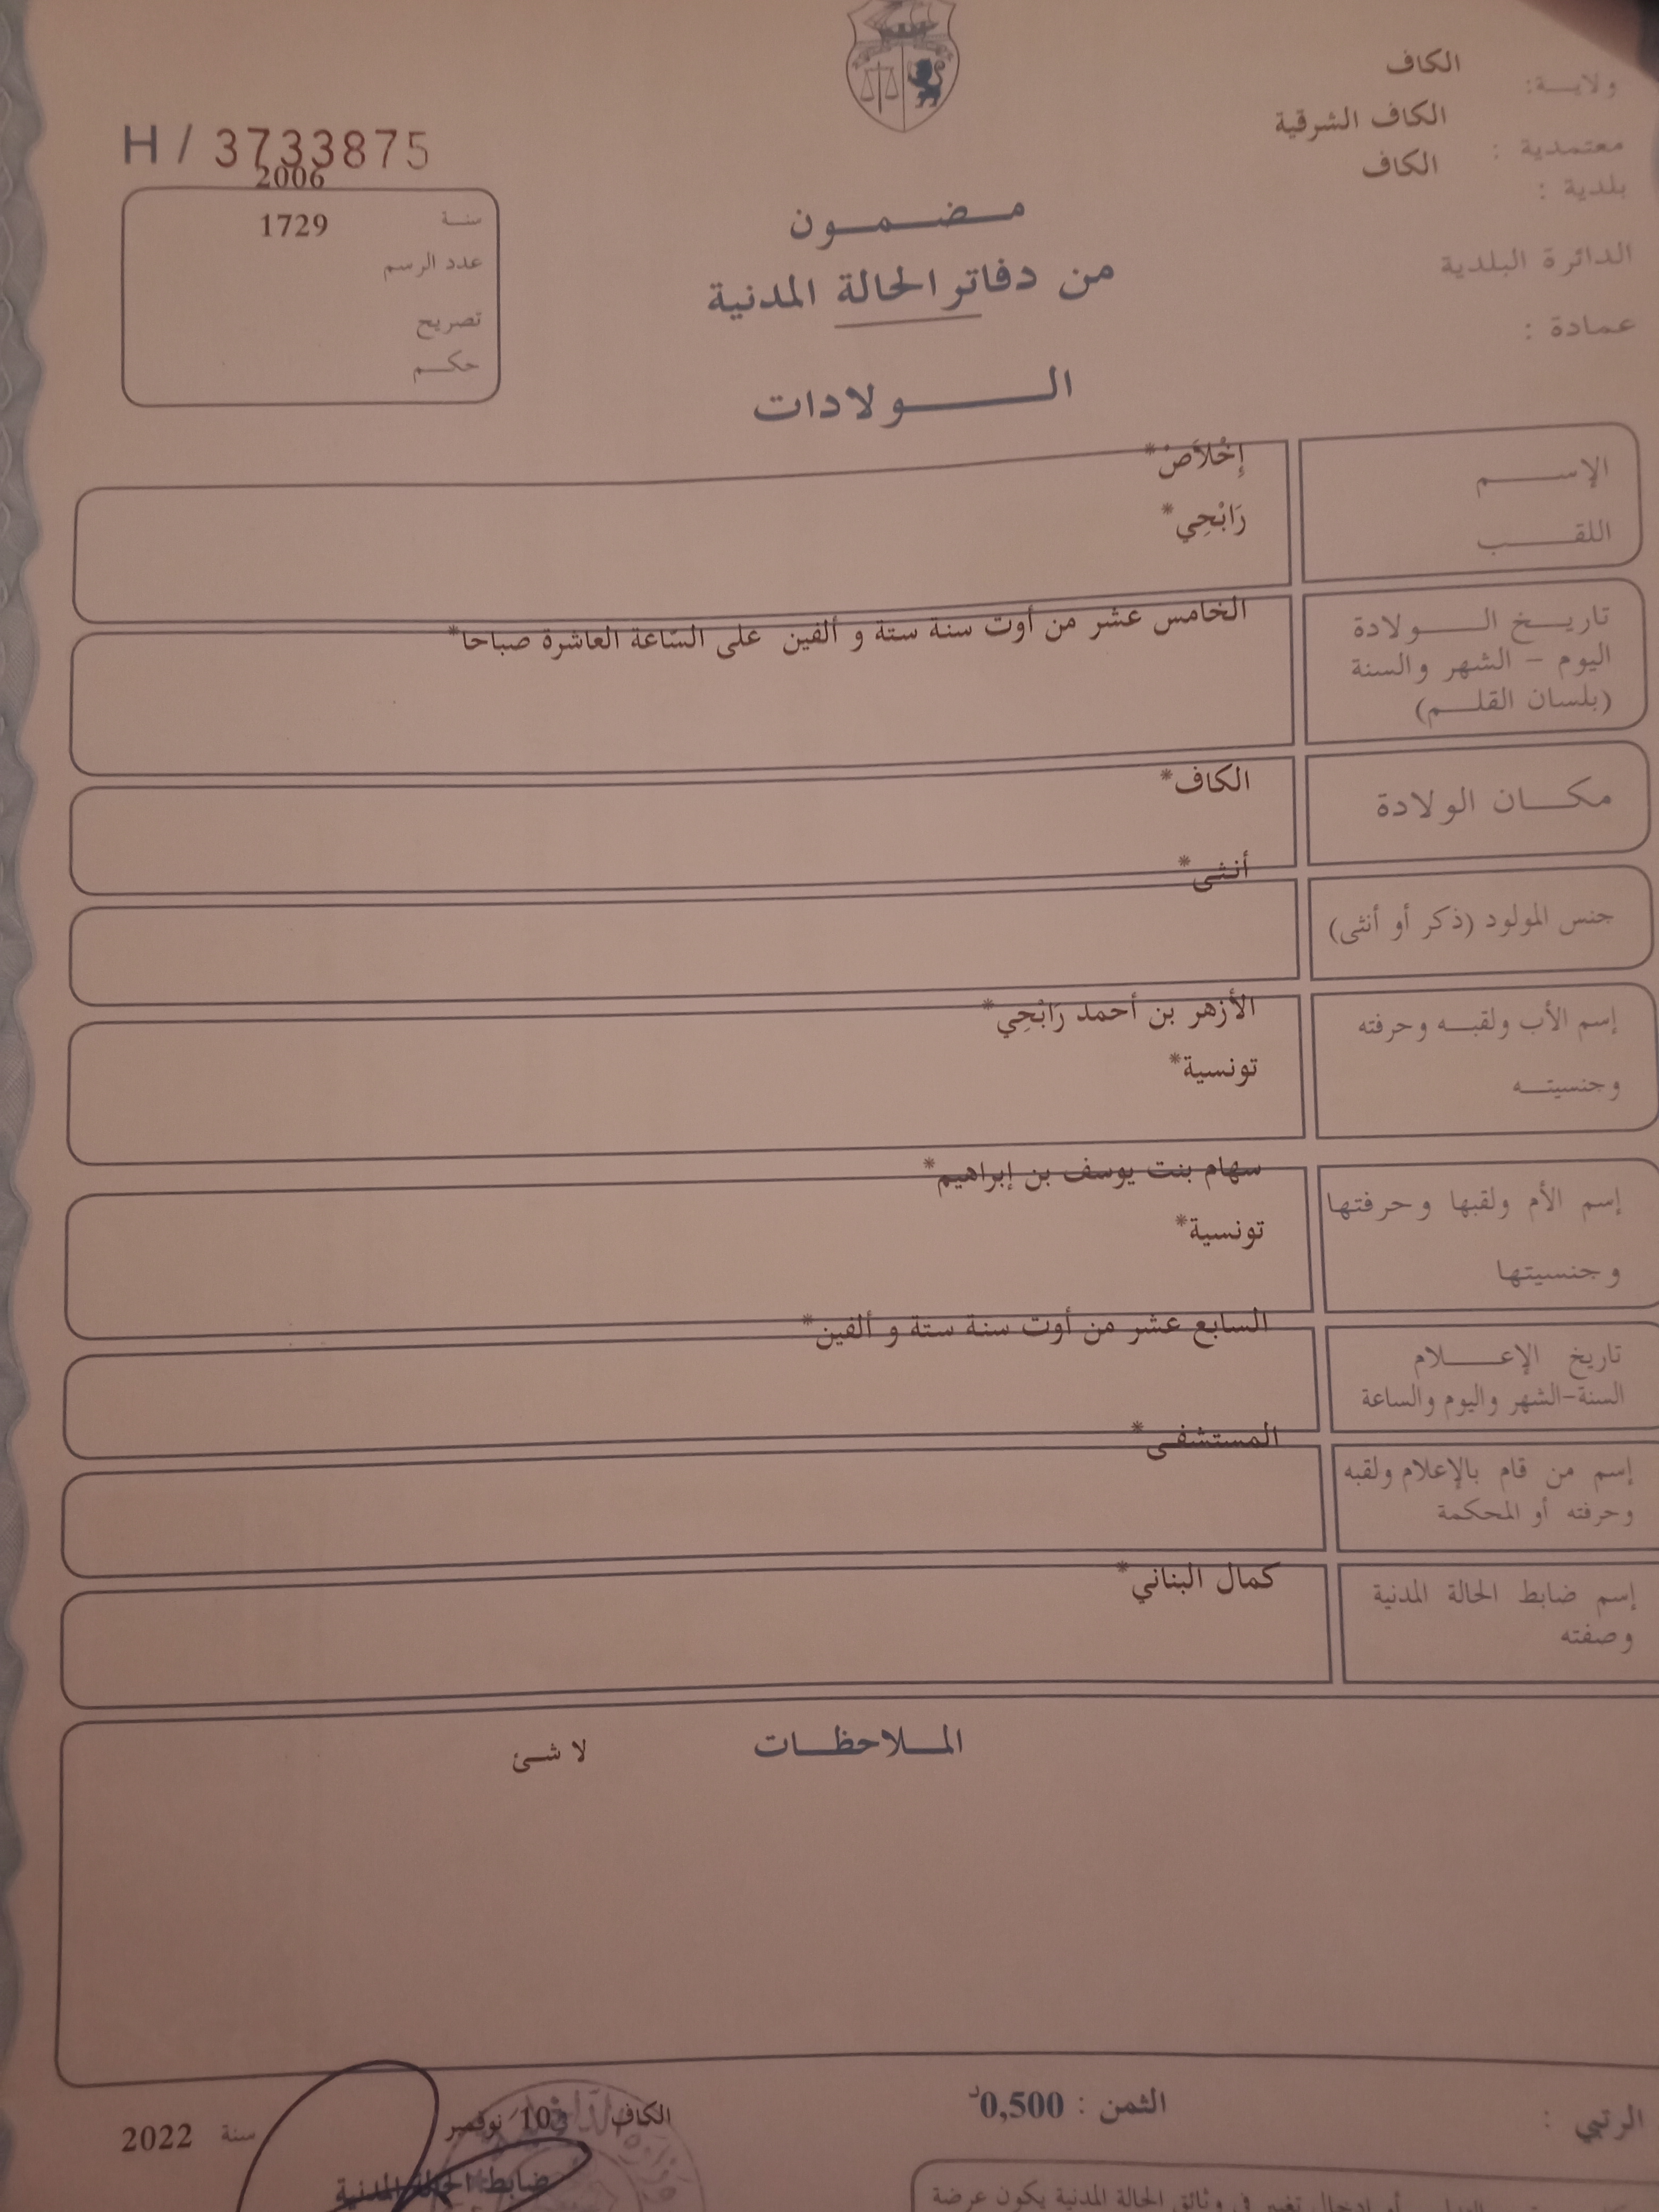 ولايـــة: الكاف
معتمدية : الكاف الشرقية
بلدية : الكاف
الدائرة البلدية
عمادة :
H / 3733875
سنـة 2006
عدد الرسم 1729
تصريح
حكـــم
مـــضــــمــــون
من دفاتر الحالة المدنية
الــــــولادات
الإســـــم إِخْلاَصْ*
اللقـــــب رَابْحِي*
تاريــخ الـــــولادة
اليوم - الشهر والسنة
(بلسان القلـــم)
الخامس عشر من أوت سنة ستة و ألفين على السّاعة العاشرة صباحا*
مكـــان الولادة الكاف*
جنس المولود (ذكر أو أنثى) أنثى*
إسم الأب ولقبـــه وحرفته الأزهر بن أحمد رَابْحِي*
وجنسيتـــه تونسية*
إسم الأم ولقبها وحرفتها سهام بنت يوسف بن إبراهيم*
وجنسيتها تونسية*
تاريخ الإعــــلام
السنة-الشهر واليوم والساعة
السابع عشر من أوت سنة ستة و ألفين*
إسم من قام بالإعلام ولقبه
وحرفته أو المحكمة
المستشفى*
إسم ضابط الحالة المدنية
وصفته
كمال البناني*
المــلاحظــات لا شئ
الرتبي :
الثمن : 0,500د
الكاف 10 نوفمبر سنة 2022
ضابط الحالة المدنية
أو إدخال تغيير في وثائق الحالة المدنية يكون عرضة